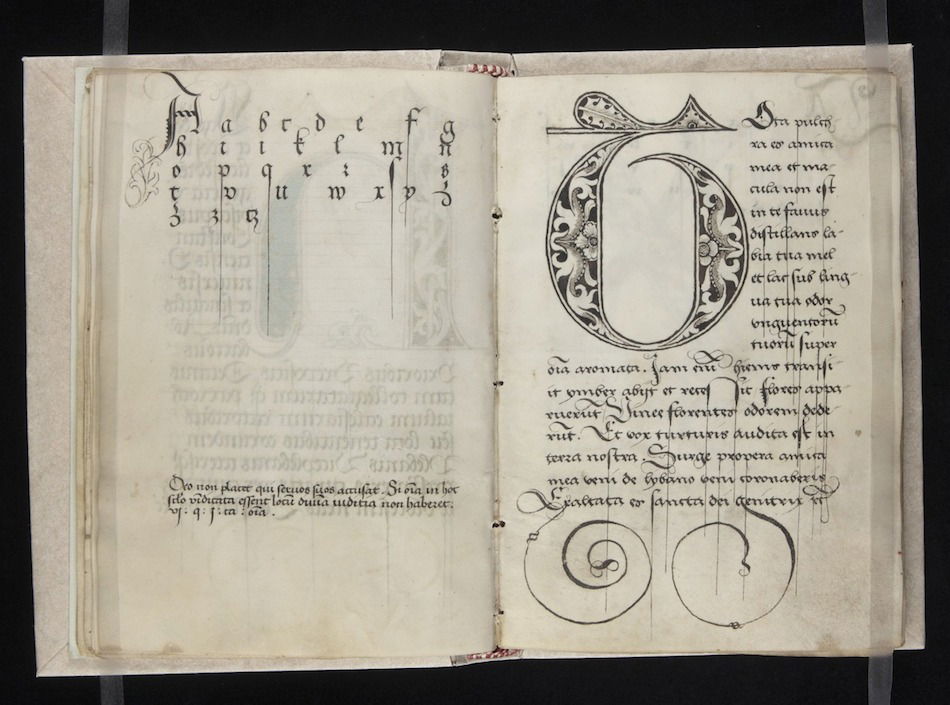 a b c d e f g
h i i k l m n
o p q r z ſ s
t v u w x y ʒ
ʒ ʒ tz
Deo non placet qui seruos suos accusat. Si oīa in hoc
sclo vīdicata essent locū diuīa iuditia non haberēt.
vi: q: i: ca: oīa.
Tota pulch
ra es amica
mea et ma
cula non est
in te fauus
distillans la-
bia tua mel
et lac sub ling
ua tua odor
vnguentorū
tuorū super
oīa aromata. Iam eīn hyems transi
it ymber abijt et recessit flores appa
ruerūt Vinee florentes odorem dede
rūt. Et vox turturis audita est in
terra nostra. Surge propera amica
mea veni de lybano veni coronaberis
Exaltata es sancta dei genitrix